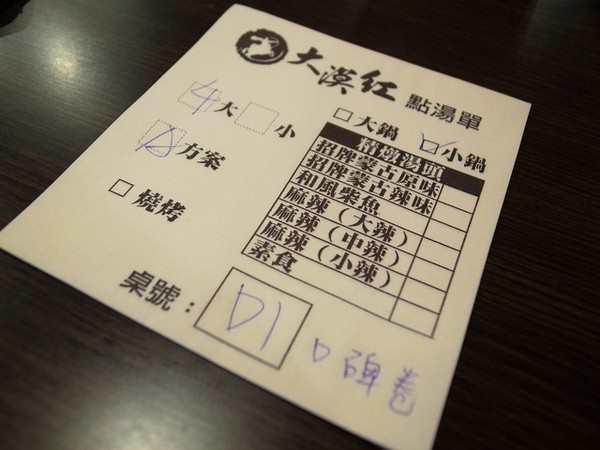 大漠紅 點湯單
4大 小
A方案
燒烤
大鍋 小鍋
精緻湯頭
招牌蒙古原味
招牌蒙古辣味
和風柴魚
麻辣（大辣）
麻辣（中辣）
麻辣（小辣）
素食
桌號：D1
口碑卷